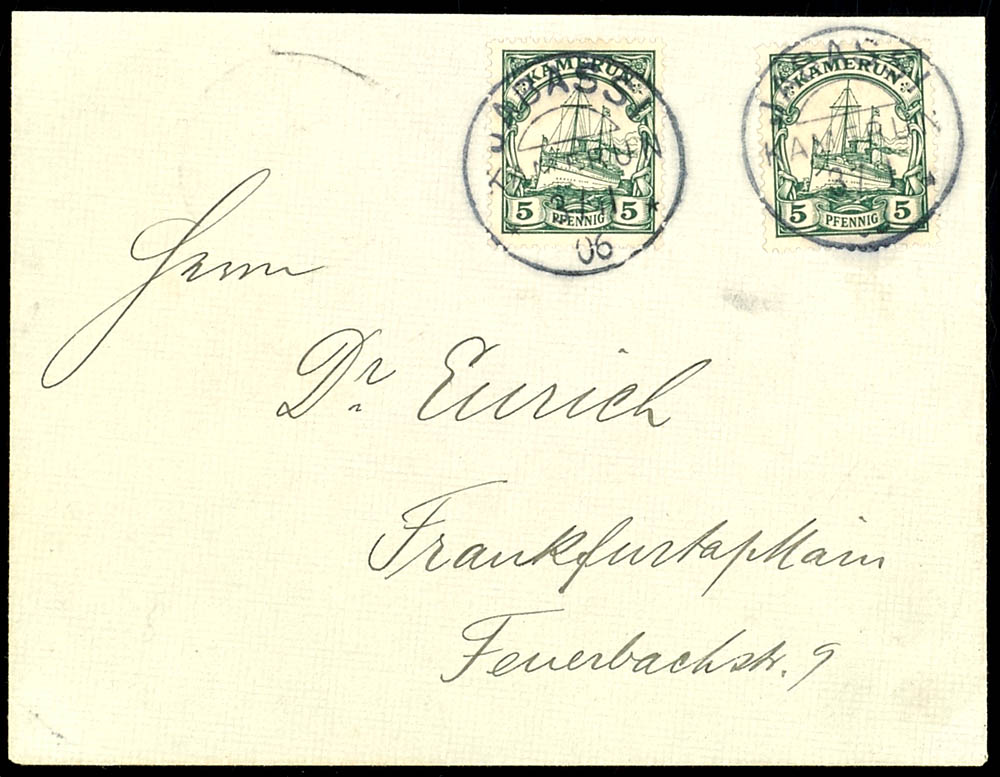 KAMERUN
5 PFENNIG 5
JABASSI
KAMERUN
06
KAMERUN
5 PFENNIG 5
JABASSI
KAMERUN
Herrn
Dr. Eurich
Frankfurt a/Main
Feuerbachstr. 9